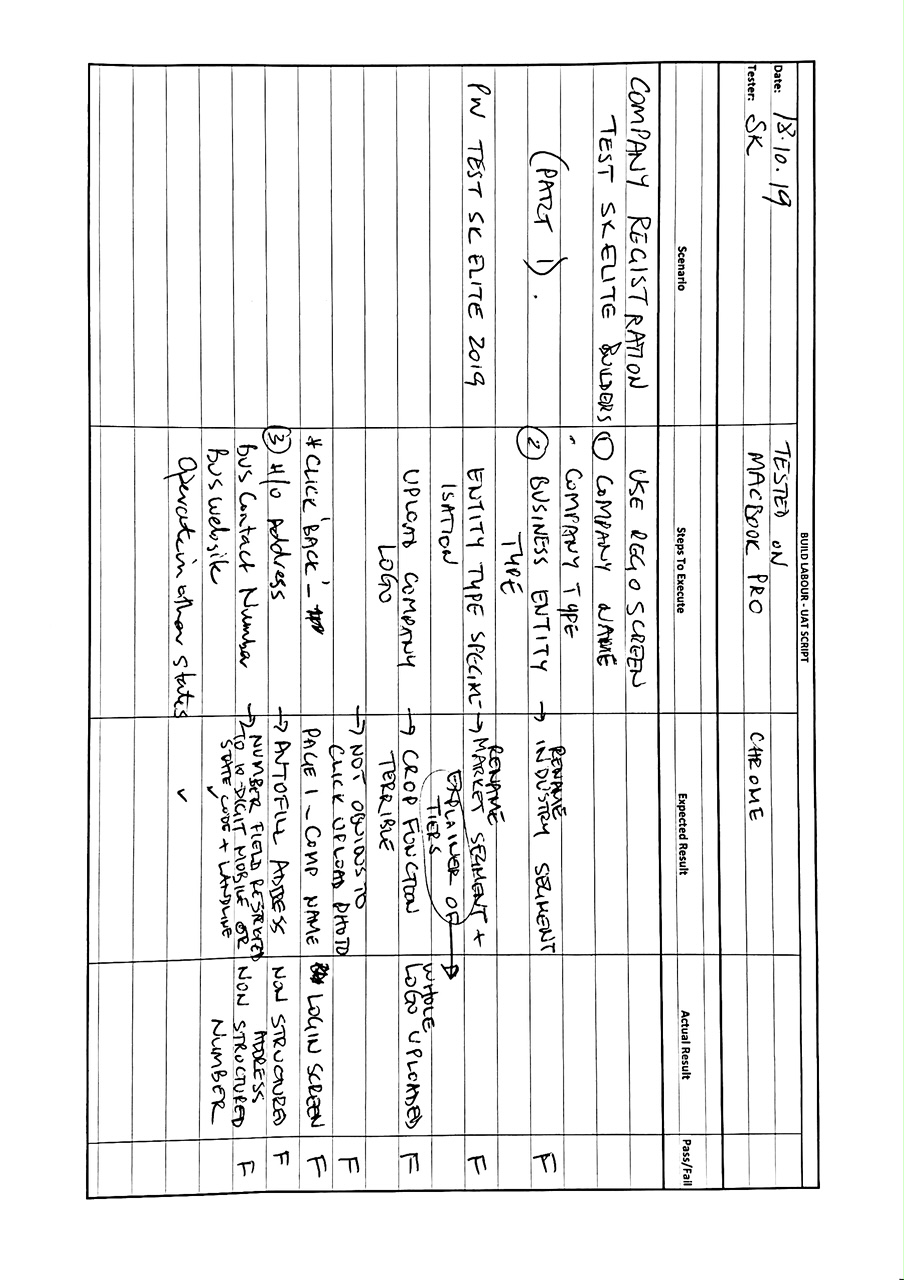 BUILD LABOUR - UAT SCRIPT
Date: 18.10.19 TESTED ON
Tester: SK MACBOOK PRO CHROME
Scenario Steps To Execute Expected Result Actual Result Pass/Fail
COMPANY REGISTRATION USE REGO SCREEN
TEST SK ELITE BUILDERS ① COMPANY NAME
- COMPANY TYPE
(PART 1). ② BUSINESS ENTITY → RENAME INDUSTRY SEGMENT F
TYPE
PW TEST SK ELITE 2019 ENTITY TYPE SPECIAL- → RENAME MARKET SEGMENT + F
ISATION EXPLAINER OF →
TIERS
UPLOAD COMPANY → CROP FUNCTION WHOLE LOGO UPLOADED F
LOGO TERRIBLE
→ NOT OBVIOUS TO F
CLICK UPLOAD PHOTO
* CLICK 'BACK' - PAGE 1 - COMP NAME LOGIN SCREEN F
③ H/O Address → AUTOFILL ADDRESS NON STRUCTURED F
ADDRESS
Bus Contact Number → NUMBER FIELD RESTRICTED NON STRUCTURED F
TO 10-DIGIT MOBILE OR NUMBER
STATE CODE + LANDLINE
Bus website ✓
Operate in other states ✓